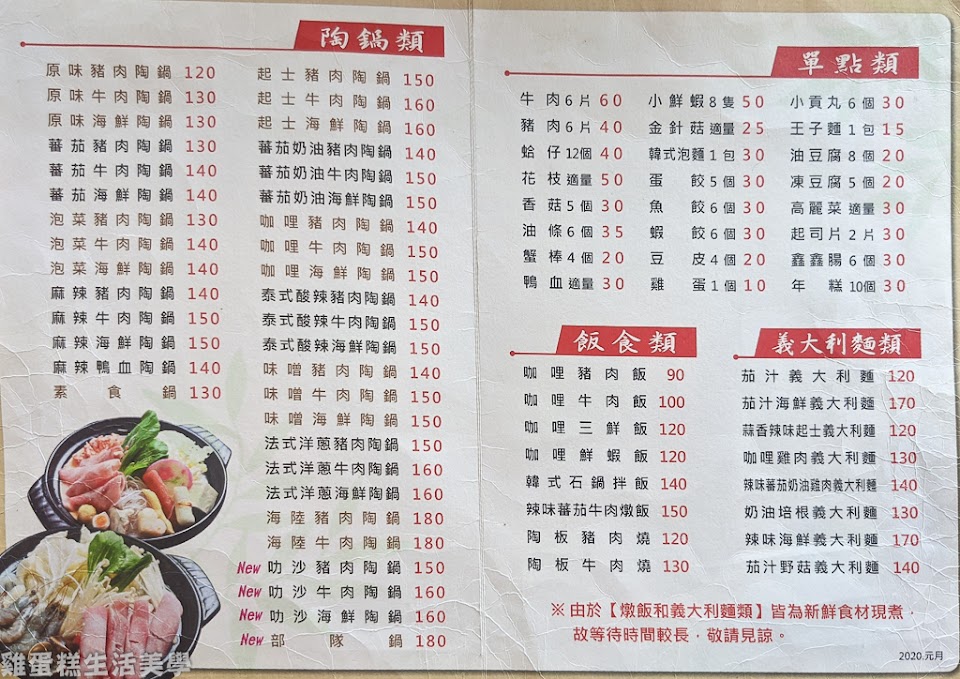 陶鍋類
原味豬肉陶鍋 120
原味牛肉陶鍋 130
原味海鮮陶鍋 130
蕃茄豬肉陶鍋 130
蕃茄牛肉陶鍋 140
蕃茄海鮮陶鍋 140
泡菜豬肉陶鍋 130
泡菜牛肉陶鍋 140
泡菜海鮮陶鍋 140
麻辣豬肉陶鍋 140
麻辣牛肉陶鍋 150
麻辣海鮮陶鍋 150
麻辣鴨血陶鍋 140
素食鍋 130
起士豬肉陶鍋 150
起士牛肉陶鍋 160
起士海鮮陶鍋 160
蕃茄奶油豬肉陶鍋 140
蕃茄奶油牛肉陶鍋 150
蕃茄奶油海鮮陶鍋 150
咖哩豬肉陶鍋 140
咖哩牛肉陶鍋 150
咖哩海鮮陶鍋 150
泰式酸辣豬肉陶鍋 140
泰式酸辣牛肉陶鍋 150
泰式酸辣海鮮陶鍋 150
味噌豬肉陶鍋 140
味噌牛肉陶鍋 150
味噌海鮮陶鍋 150
法式洋蔥豬肉陶鍋 150
法式洋蔥牛肉陶鍋 160
法式洋蔥海鮮陶鍋 160
海陸豬肉陶鍋 180
海陸牛肉陶鍋 180
New 叻沙豬肉陶鍋 150
New 叻沙牛肉陶鍋 160
New 叻沙海鮮陶鍋 160
New 部隊鍋 180
單點類
牛肉6片 60
豬肉6片 40
蛤仔12個 40
花枝適量 50
香菇5個 30
油條6個 35
蟹棒4個 20
鴨血適量 30
小鮮蝦8隻 50
金針菇適量 25
韓式泡麵1包 30
蛋餃5個 30
魚餃6個 30
蝦餃6個 30
豆皮4個 20
雞蛋1個 10
小貢丸6個 30
王子麵1包 15
油豆腐8個 20
凍豆腐5個 20
高麗菜適量 30
起司片2片 30
鑫鑫腸6個 30
年糕10個 30
飯食類
咖哩豬肉飯 90
咖哩牛肉飯 100
咖哩三鮮飯 120
咖哩鮮蝦飯 120
韓式石鍋拌飯 140
辣味蕃茄牛肉燉飯 150
陶板豬肉燒 120
陶板牛肉燒 130
義大利麵類
茄汁義大利麵 120
茄汁海鮮義大利麵 170
蒜香辣味起士義大利麵 120
咖哩雞肉義大利麵 130
辣味蕃茄奶油雞肉義大利麵 140
奶油培根義大利麵 130
辣味海鮮義大利麵 170
茄汁野菇義大利麵 140
※由於【燉飯和義大利麵類】皆為新鮮食材現煮，
故等待時間較長，敬請見諒。
2020.元月
雞蛋糕生活美學